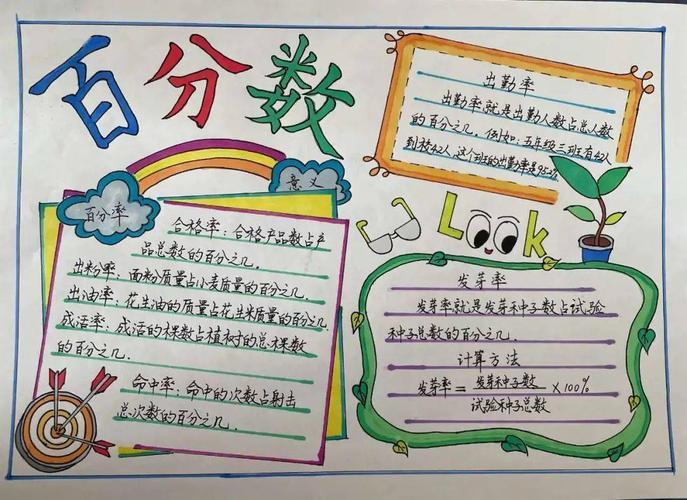 百分数
百分率
意义
合格率：合格产品数占产
品总数的百分之几。
出粉率：面粉质量占小麦质量的百分之几。
出油率：花生油的质量占花生米质量的百分之几
成活率：成活的棵数占植树的总棵数
的百分之几。
命中率：命中的次数占射击
总次数的百分之几。
出勤率
出勤率就是出勤人数占总人数
的百分之几，例如：五年级三班有42人
到校42人，这个班的出勤率是
Look
发芽率
发芽率就是发芽种子数占试验
种子总数的百分之几。
计算方法
发芽率=发芽种子数/试验种子总数×100%